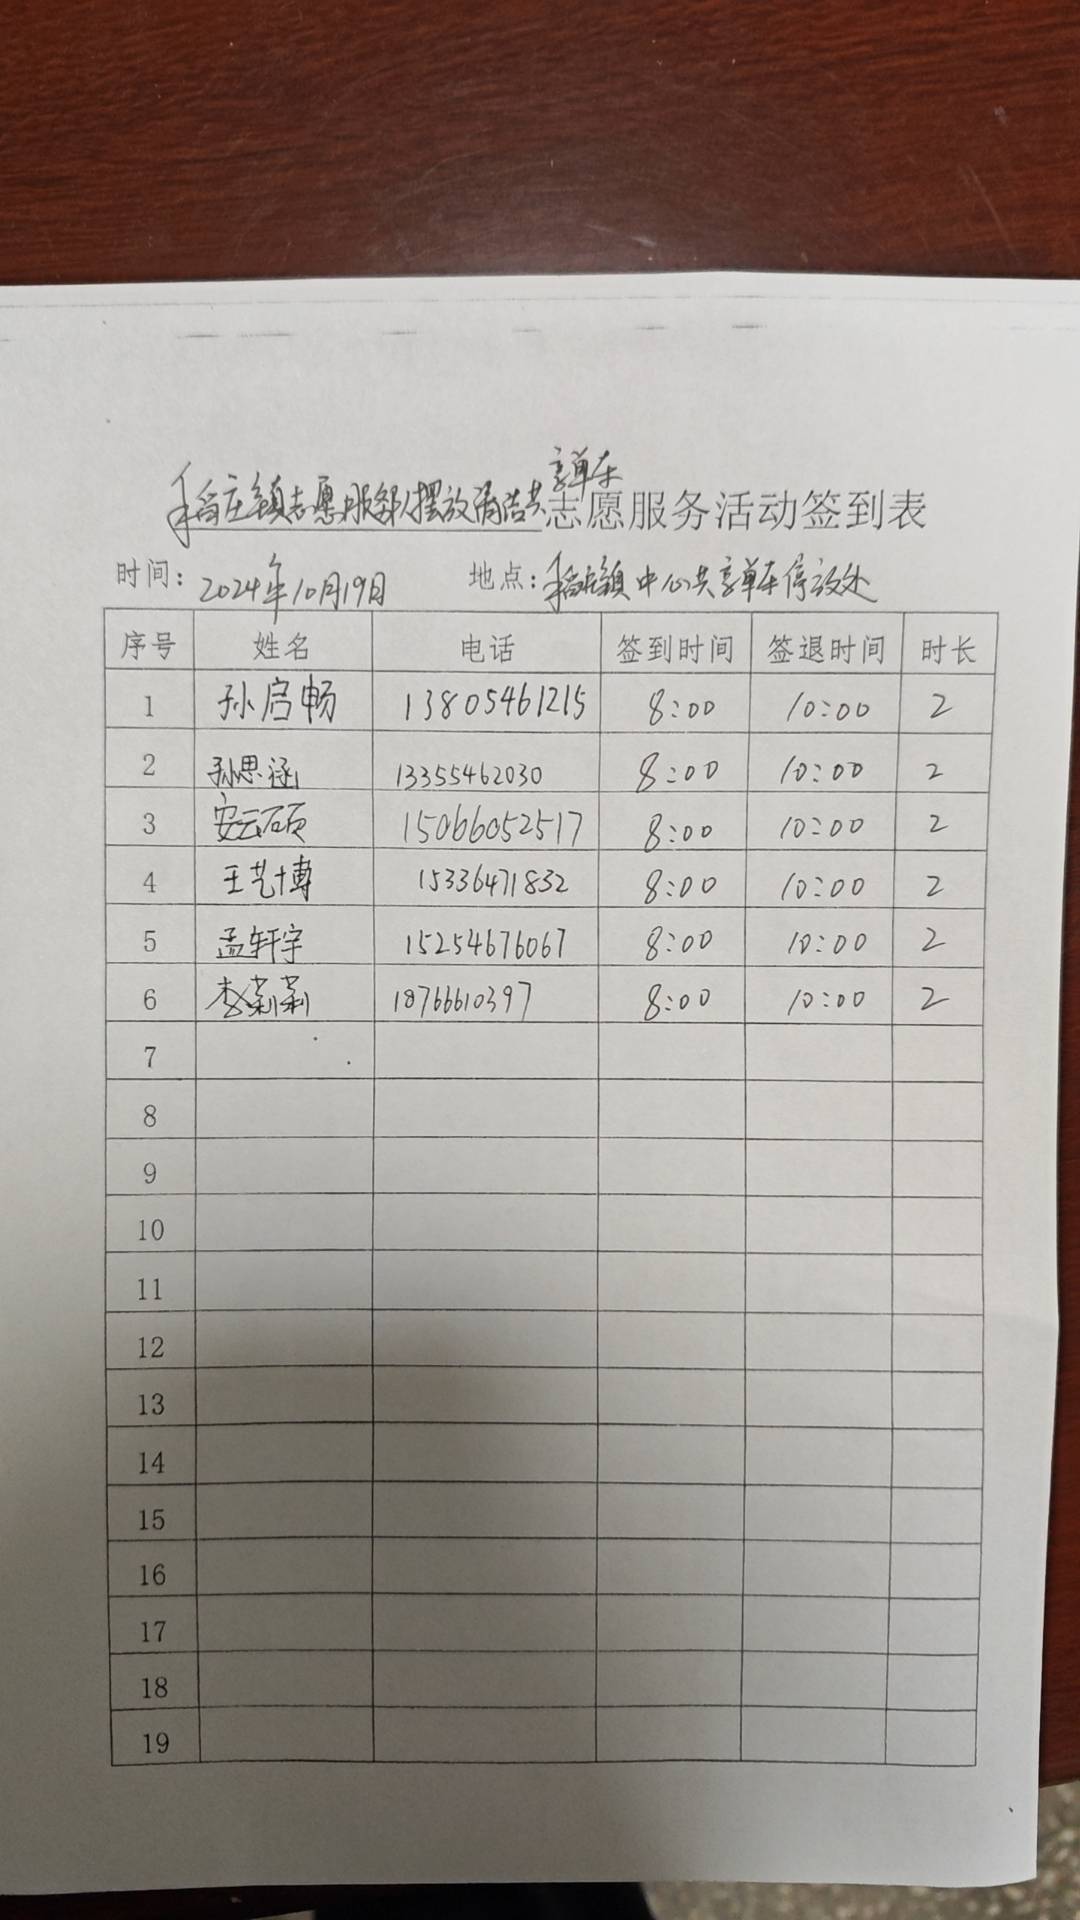 稻庄镇志愿服务队摆放清洁共享单车志愿服务活动签到表
时间：2024年10月19日 地点：稻庄镇中心共享单车停放处
序号 姓名 电话 签到时间 签退时间 时长
1 孙启畅 13805461215 8:00 10:00 2
2 孙思涵 13355462030 8:00 10:00 2
3 安云硕 15066052517 8:00 10:00 2
4 王艺博 15336471832 8:00 10:00 2
5 孟轩宇 15254676067 8:00 10:00 2
6 李莉莉 18766610397 8:00 10:00 2
7
8
9
10
11
12
13
14
15
16
17
18
19